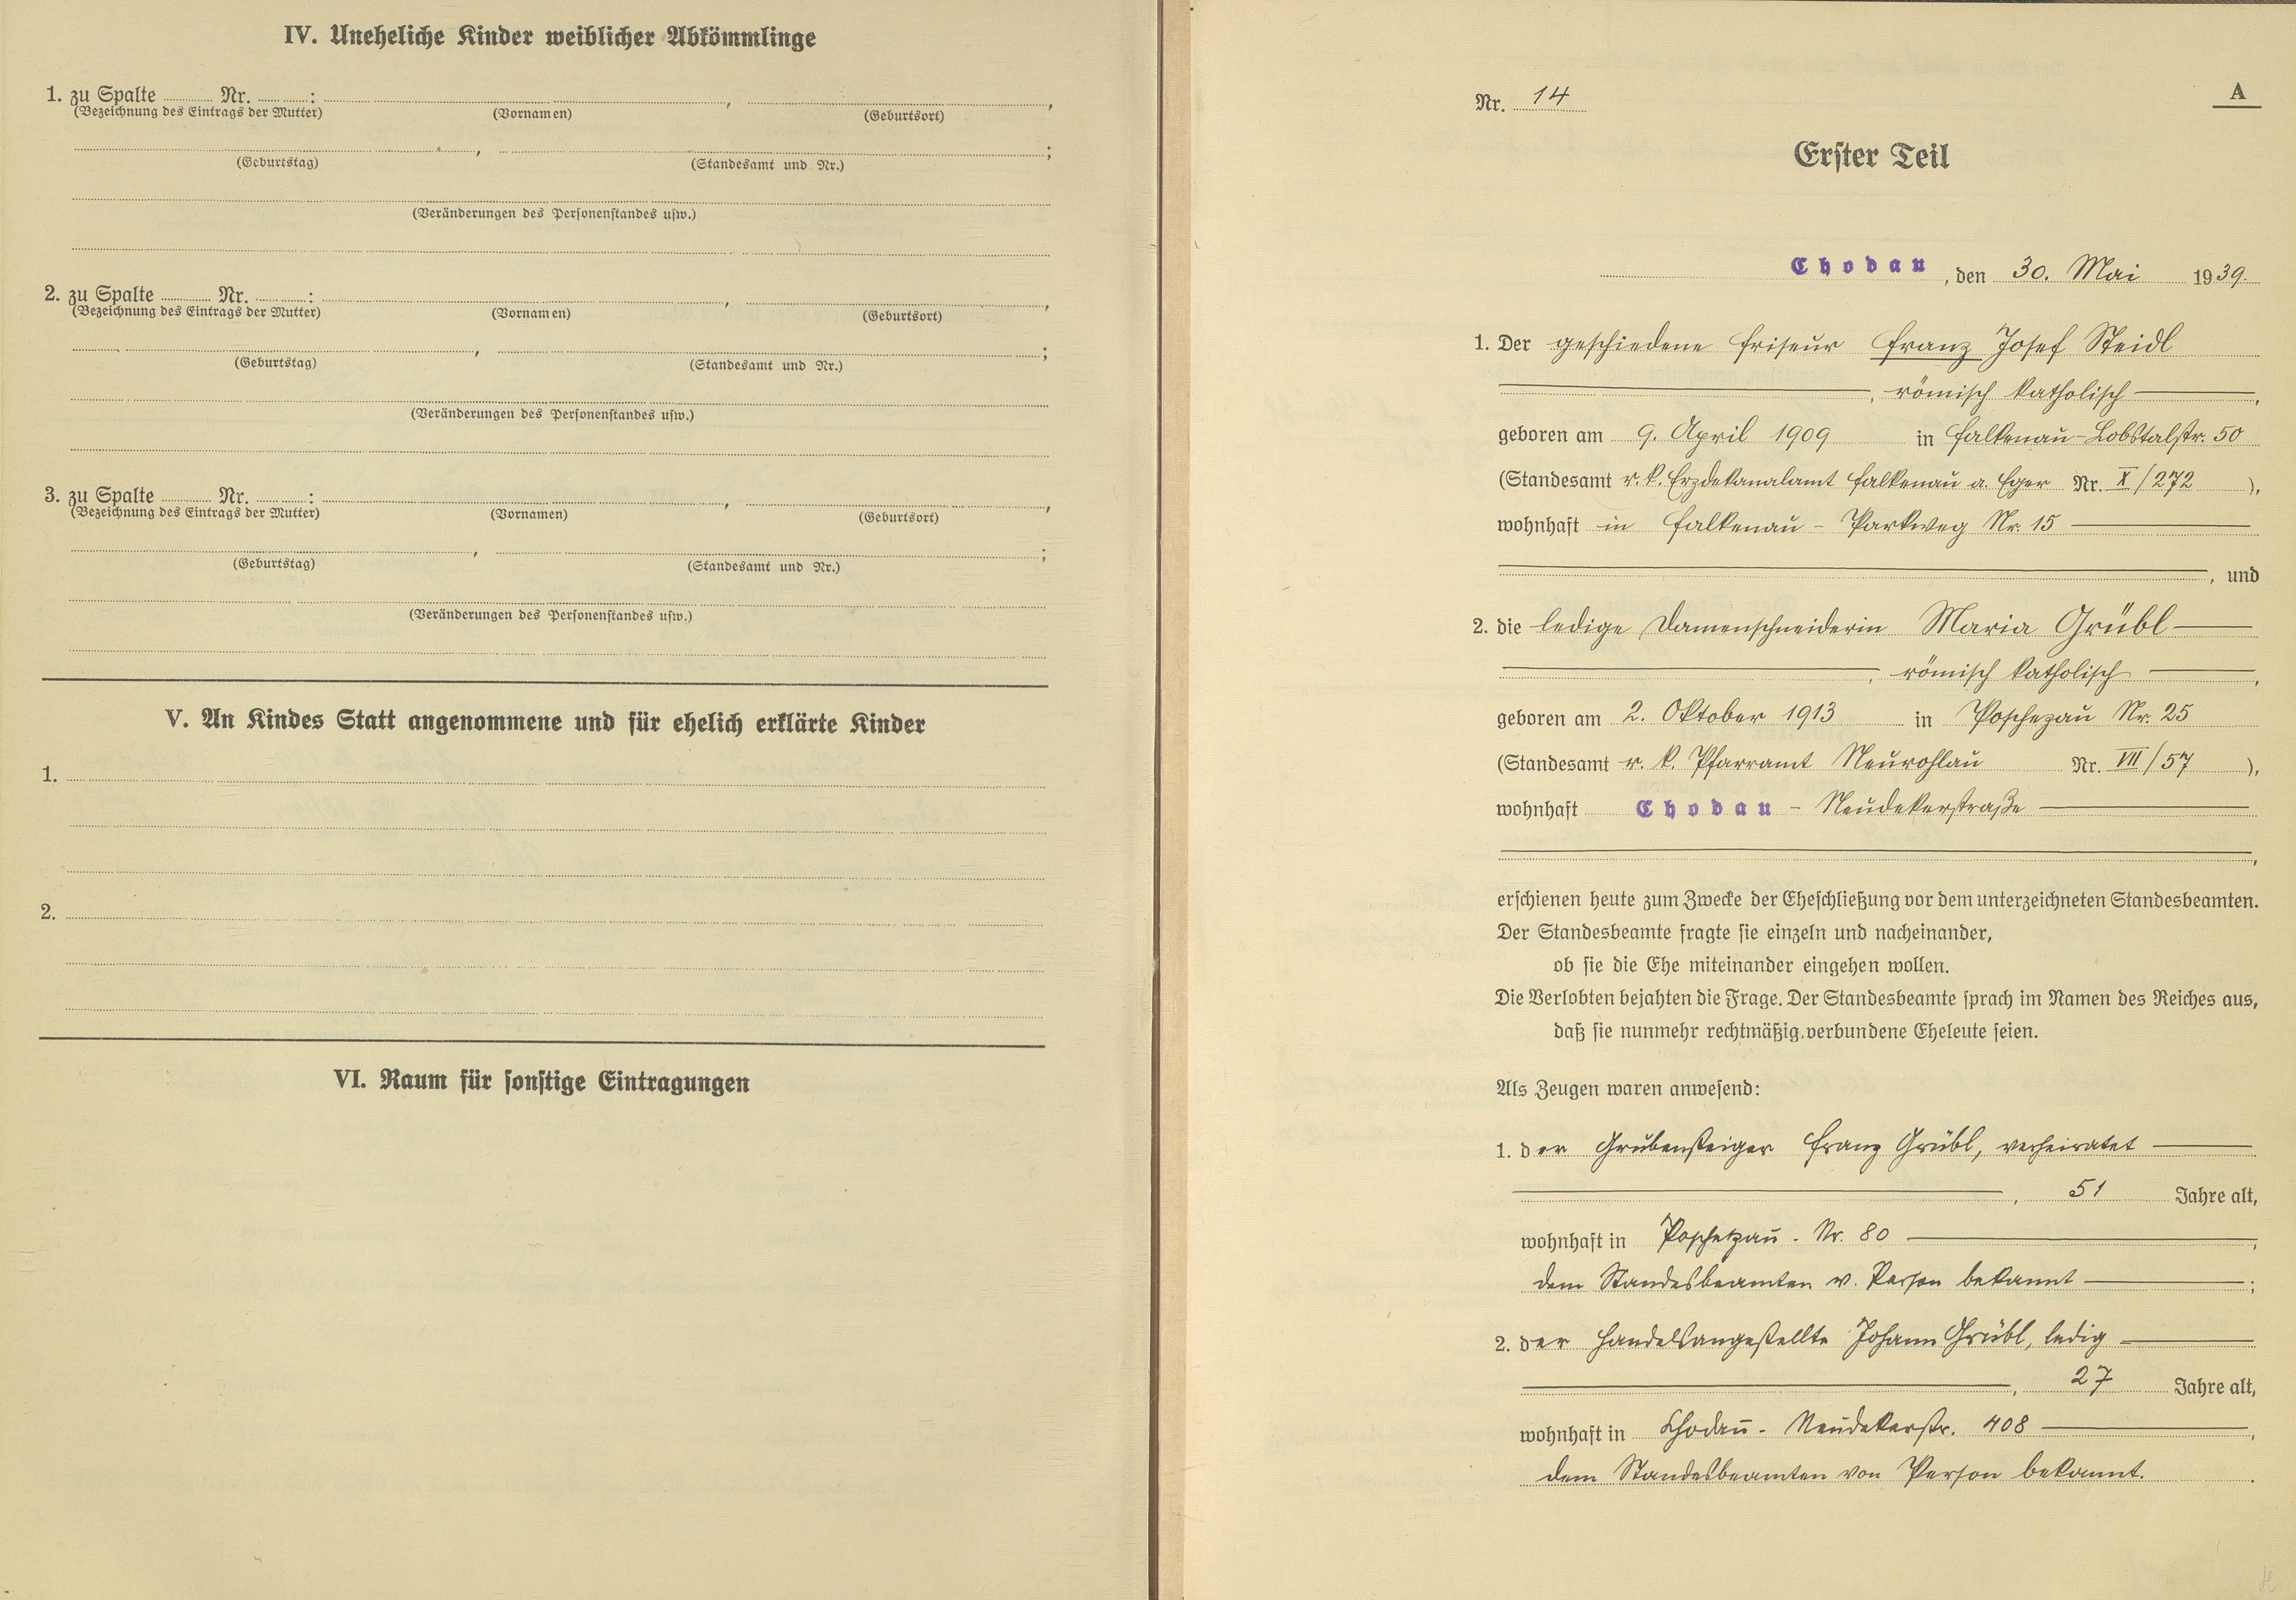 IV. Uneheliche Kinder weiblicher Abkömmlinge
1. zu Spalte Nr. : , ,
(Bezeichnung des Eintrags der Mutter) (Vornamen) (Geburtsort)
, ;
(Geburtstag) (Standesamt und Nr.)
(Veränderungen des Personenstandes usw.)
2. zu Spalte Nr. : , ,
(Bezeichnung des Eintrags der Mutter) (Vornamen) (Geburtsort)
, ;
(Geburtstag) (Standesamt und Nr.)
(Veränderungen des Personenstandes usw.)
3. zu Spalte Nr. : , ,
(Bezeichnung des Eintrags der Mutter) (Vornamen) (Geburtsort)
, ;
(Geburtstag) (Standesamt und Nr.)
(Veränderungen des Personenstandes usw.)
V. An Kindes Statt angenommene und für ehelich erklärte Kinder
1.
2.
VI. Raum für sonstige Eintragungen
Nr. 14
A
Erster Teil
Chodau, den 30. Mai 1939.
1. Der geschiedene Friseur Franz Josef Steidl
, römisch katholisch ,
geboren am 9. April 1909 in Falkenau-Lobstalstr. 50
(Standesamt r. k. Erzdekanalamt Falkenau a. Eger Nr. X/272 ),
wohnhaft in Falkenau - Parkweg Nr. 15
, und
2. die ledige Damenschneiderin Maria Grübl
, römisch katholisch ,
geboren am 2. Oktober 1913 in Poschezau Nr. 25
(Standesamt r. k. Pfarramt Neurohlau Nr. VII/57 ),
wohnhaft Chodau - Neudekerstraße
,
erschienen heute zum Zwecke der Eheschließung vor dem unterzeichneten Standesbeamten.
Der Standesbeamte fragte sie einzeln und nacheinander,
ob sie die Ehe miteinander eingehen wollen.
Die Verlobten bejahten die Frage. Der Standesbeamte sprach im Namen des Reiches aus,
daß sie nunmehr rechtmäßig verbundene Eheleute seien.
Als Zeugen waren anwesend:
1. der Grubensteiger Franz Grübl, verheiratet
, 51 Jahre alt,
wohnhaft in Poschetzau - Nr. 80 ,
dem Standesbeamten v. Person bekannt ;
2. der Handelsangestellte Johann Grübl, ledig
, 27 Jahre alt,
wohnhaft in Chodau - Neudekerstr. 408 ,
dem Standesbeamten von Person bekannt.